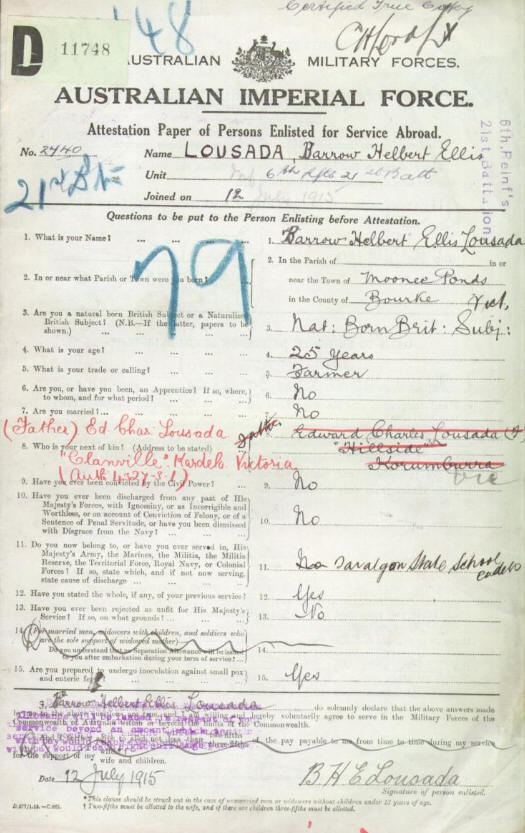 Certified True Copy
D 11748
AUSTRALIAN MILITARY FORCES.
AUSTRALIAN IMPERIAL FORCE.
Attestation Paper of Persons Enlisted for Service Abroad.
No. 2740 Name LOUSADA, Barrow Helbert Ellis
Unit 6th Rfts 21st Batt
6th Reinf's
21st Battalion
21st Bn
Joined on 12 July 1915
Questions to be put to the Person Enlisting before Attestation.
1. What is your Name? 1. Barrow Helbert Ellis Lousada
2. In or near what Parish or Town were you born? 2. In the Parish of in or
near the Town of Moonee Ponds
in the County of Bourke Vict,
3. Are you a natural born British Subject or a Naturalized
British Subject? (N.B.—If the latter, papers to be
shown.) 3. Nat: Born Brit: Subj:
4. What is your age? 4. 25 years
5. What is your trade or calling? 5. Farmer
6. Are you, or have you been, an Apprentice? If so, where,
to whom, and for what period? 6. No
7. Are you married? 7. No
(Father) Ed Chas Lousada father Edward Charles Lousada (F)
8. Who is your next of kin? (Address to be stated) "Hillside"
"Clanville" Kardella Victoria Korumburra
Vic
9. Have you ever been convicted by the Civil Power? 9. No
10. Have you ever been discharged from any part of His
Majesty's Forces, with Ignominy, or as Incorrigible and
Worthless, or on account of Conviction of Felony, or of a
Sentence of Penal Servitude, or have you been dismissed
with Disgrace from the Navy? 10. No
11. Do you now belong to, or have you ever served in, His
Majesty's Army, the Marines, the Militia, the Militia
Reserve, the Territorial Force, Royal Navy, or Colonial
Forces? If so, state which, and if not now serving,
state cause of discharge 11. Traralgon State School Cadets
12. Have you stated the whole, if any, of your previous service? 12. Yes
13. Have you ever been rejected as unfit for His Majesty's
Service? If so, on what grounds? 13. No
14. (For married men, widowers with children, and soldiers who
are the sole support of widowed mother)—
Do you understand that no Separation Allowance will be issued
to you after embarkation during your term of service? 14.
15. Are you prepared to undergo inoculation against small pox
and enteric fever? 15. Yes
I, Barrow Helbert Ellis Lousada do solemnly declare that the above answers made
by me to the above questions are true, and I am willing and hereby voluntarily agree to serve in the Military Forces of the
Commonwealth of Australia within or beyond the limits of the Commonwealth.
of the pay payable to me from time to time during my service
for the support of my wife and children.
Date 12 July 1915 B H E Lousada
Signature of person enlisted.
* This clause should be struck out in the case of unmarried men or widowers without children under 18 years of age.
† Two-fifths must be allotted to the wife, and if there are children three-fifths must be allotted.